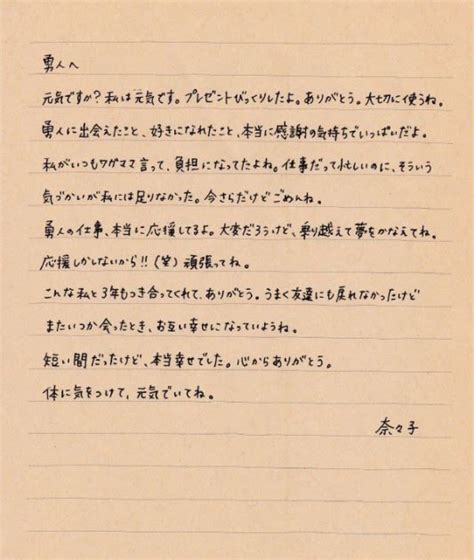 勇人へ
元気ですか?私は元気です。プレゼントびっくりしたよ。ありがとう。大切に使うね。
勇人に出会えたこと、好きになれたこと、本当に感謝の気持ちでいっぱいだよ。
私がいつもワガママ言って、負担になってたよね。仕事だって忙しいのに、そういう
気づかいが私には足りなかった。今さらだけどごめんね。
勇人の仕事、本当に応援してるよ。大変だろうけど、乗り越えて夢をかなえてね。
応援しかしないから!!(笑)頑張ってね。
こんな私と3年もつき合ってくれて、ありがとう。うまく友達にも戻れなかったけど
またいつか会ったとき、お互い幸せになっていようね。
短い間だったけど、本当幸せでした。心からありがとう。
体に気をつけて、元気でいてね。
奈々子